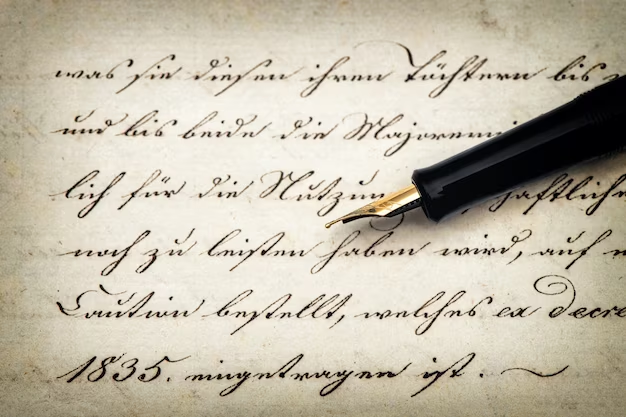 was sie diesen ihren Töchtern bis
und bis beide die Majorenni
lich für die Nutzun schaftliche
noch zu leisten haben wird, auf
Caution bestellt, welches ex decre
1835. eingetragen ist.